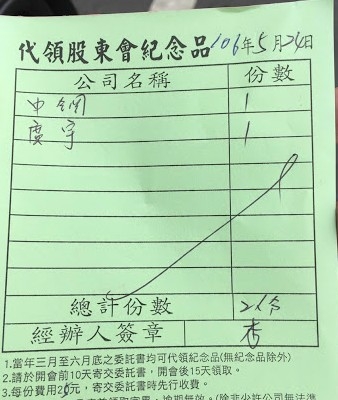 代領股東會紀念品 106年5月24日
公司名稱 份數
中鋼 1
廣宇 1
總計份數 2份
經辦人簽章 杏
1.當年三月至六月底之委託書均可代領紀念品(無紀念品除外)
2.請於開會前10天寄交委託書，開會後15天領取。
3.每份費用20元，寄交委託書時先行收費。
逾期無效。(除非少許公司無法準